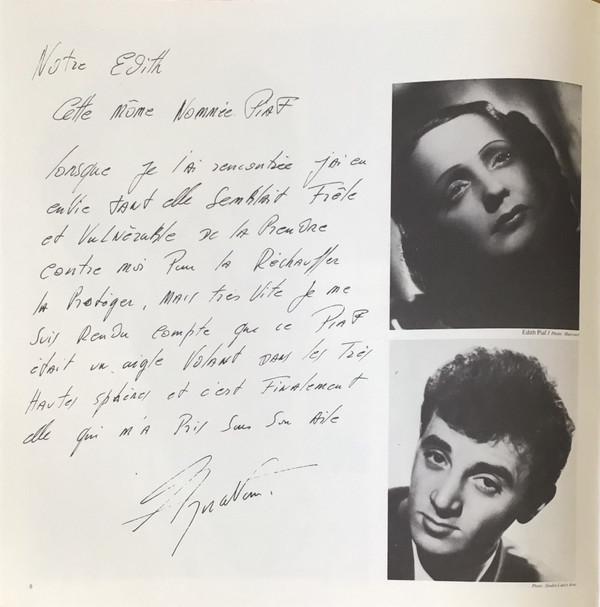 Notre Edith
Cette môme Nommée PiaF
lorsque je l'ai rencontrée j'ai eu
enVie tant elle Semblait Frêle
et Vulnérable De la Prendre
Contre moi Pour la Réchauffer
la Protéger, Mais très Vite Je me
Suis Rendu Compte que ce PiaF
était un aigle Volant Dans les Très
Hautes sphères et c'est Finalement
elle qui m'A Pris Sous Son Aile
Aznavour.
Edith Piaf / Photo:
Photo: Studio
8